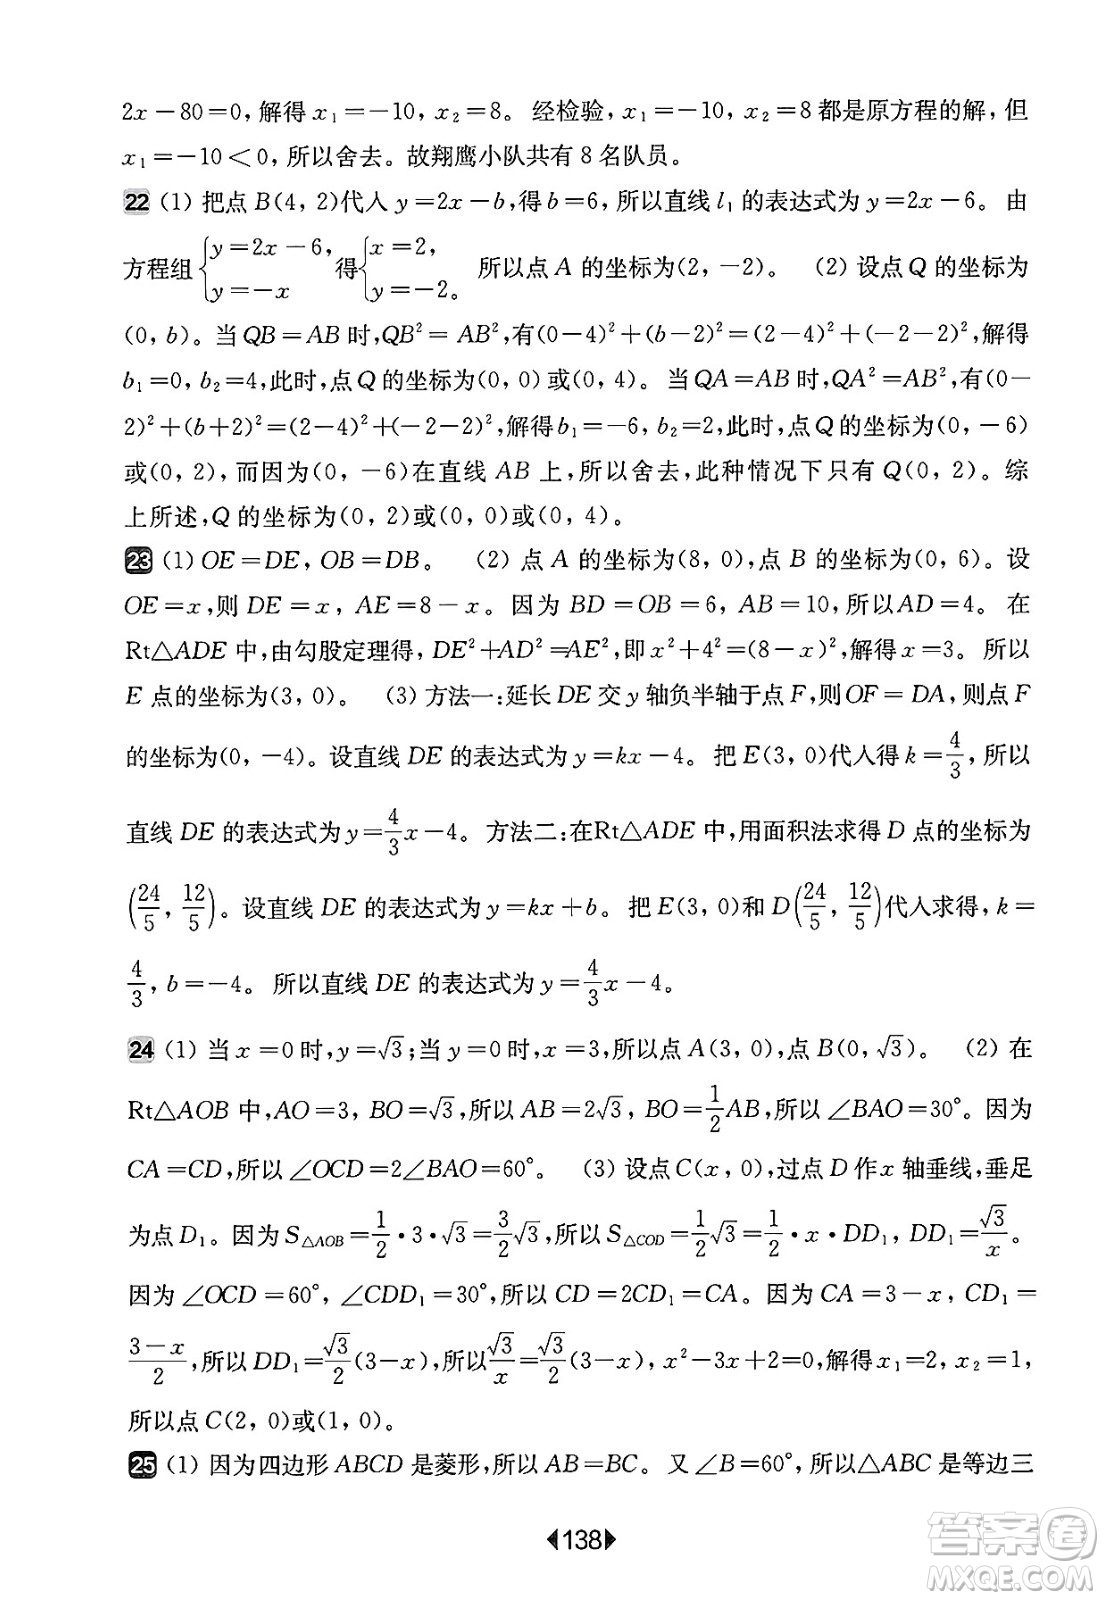 2x－80＝0,解得 x₁＝－10, x₂＝8。 经检验, x₁＝－10, x₂＝8 都是原方程的解,但
x₁＝－10＜0, 所以舍去。故翔鹰小队共有 8 名队员。
22 (1) 把点 B(4, 2)代入 y＝2x－b,得 b＝6, 所以直线 l₁ 的表达式为 y＝2x－6。 由
方程组{y＝2x－6, y＝－x 得{x＝2, y＝－2。 所以点 A 的坐标为(2, －2)。 (2) 设点 Q 的坐标为
(0, b)。当 QB＝AB 时,QB²＝AB²,有(0－4)²＋(b－2)²＝(2－4)²＋(－2－2)²,解得
b₁＝0, b₂＝4,此时,点 Q 的坐标为(0, 0)或(0, 4)。 当 QA＝AB 时,QA²＝AB²,有(0－
2)²＋(b＋2)²＝(2－4)²＋(－2－2)²,解得b₁＝－6, b₂＝2,此时,点Q的坐标为(0,－6)
或(0, 2), 而因为(0, －6)在直线 AB 上, 所以舍去, 此种情况下只有 Q(0, 2)。综
上所述,Q 的坐标为(0, 2)或(0, 0)或(0, 4)。
23 (1) OE＝DE, OB＝DB。 (2) 点 A 的坐标为(8, 0),点 B 的坐标为(0, 6)。设
OE＝x,则 DE＝x, AE＝8－x。因为 BD＝OB＝6, AB＝10,所以AD＝4。 在
Rt△ADE 中,由勾股定理得, DE²＋AD²＝AE²,即 x²＋4²＝(8－x)²,解得x＝3。所以
E 点的坐标为(3, 0)。 (3) 方法一:延长 DE 交 y 轴负半轴于点 F,则OF＝DA,则点 F
的坐标为(0, －4)。设直线 DE 的表达式为 y＝kx－4。 把 E(3, 0)代入得 k＝4/3,所以
直线 DE 的表达式为 y＝4/3x－4。 方法二:在Rt△ADE 中,用面积法求得 D 点的坐标为
(24/5, 12/5)。设直线 DE 的表达式为 y＝kx＋b。 把 E(3, 0)和 D(24/5, 12/5)代入求得, k＝
4/3, b＝－4。 所以直线 DE 的表达式为 y＝4/3x－4。
24 (1) 当 x＝0 时,y＝√3;当 y＝0 时,x＝3,所以点 A(3, 0),点 B(0, √3)。 (2) 在
Rt△AOB 中,AO＝3, BO＝√3,所以 AB＝2√3, BO＝1/2AB,所以 ∠BAO＝30°。因为
CA＝CD,所以 ∠OCD＝2∠BAO＝60°。 (3) 设点C(x, 0),过点 D 作x 轴垂线,垂足
为点 D₁。因为 S△AOB＝1/2·3·√3＝3/2√3,所以 S△COD＝1/2√3＝1/2·x·DD₁, DD₁＝√3/x。
因为 ∠OCD＝60°, ∠CDD₁＝30°,所以 CD＝2CD₁＝CA。因为 CA＝3－x, CD₁＝
3－x/2,所以 DD₁＝√3/2(3－x),所以√3/x＝√3/2(3－x), x²－3x＋2＝0,解得 x₁＝2, x₂＝1,
所以点 C(2, 0)或(1, 0)。
25 (1) 因为四边形 ABCD 是菱形,所以 AB＝BC。 又 ∠B＝60°, 所以△ABC 是等边三
138
答案卷
MXQE.COM